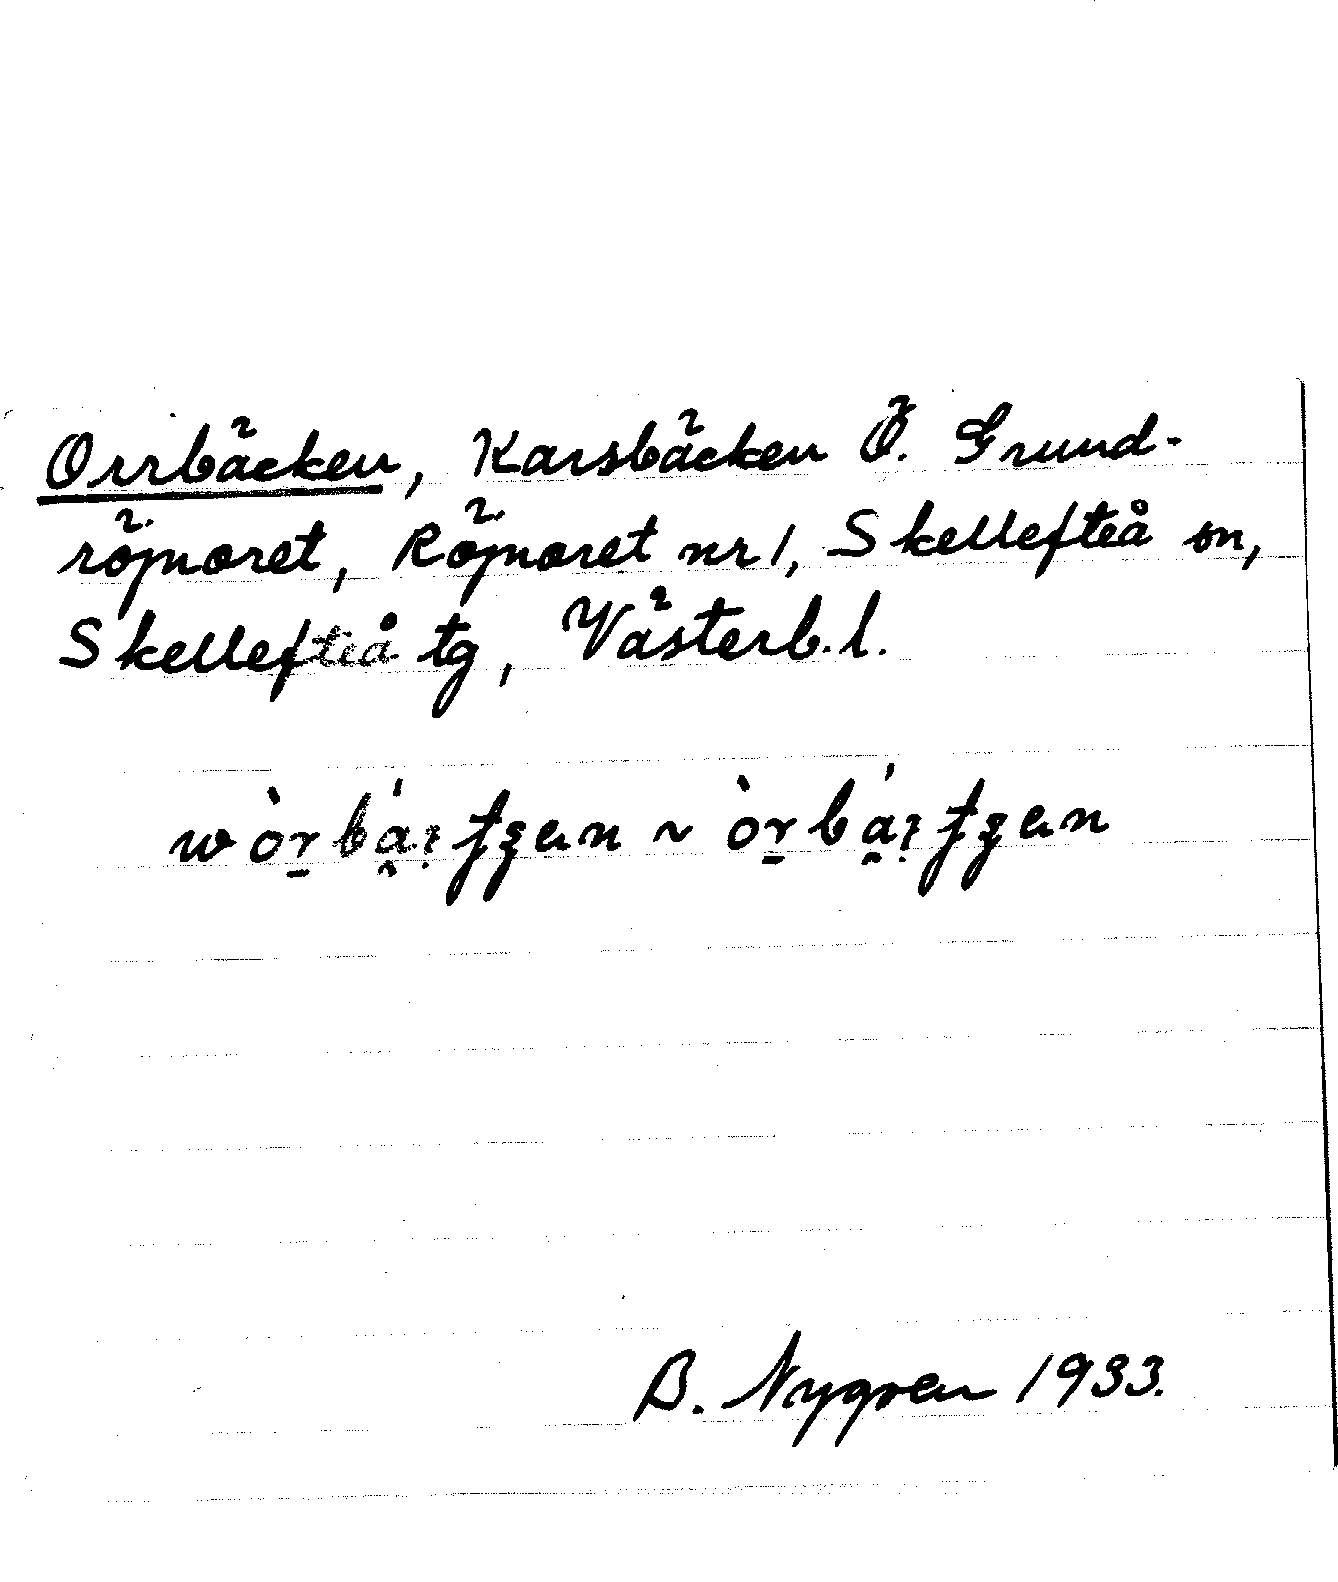 Orrbäcken, Karsbäcken Ö. Grund-
röjnoret, Röjnoret nr 1, Skellefteå sn,
Skellefteå tg, Västerb. l.
B. Nygren 1933.